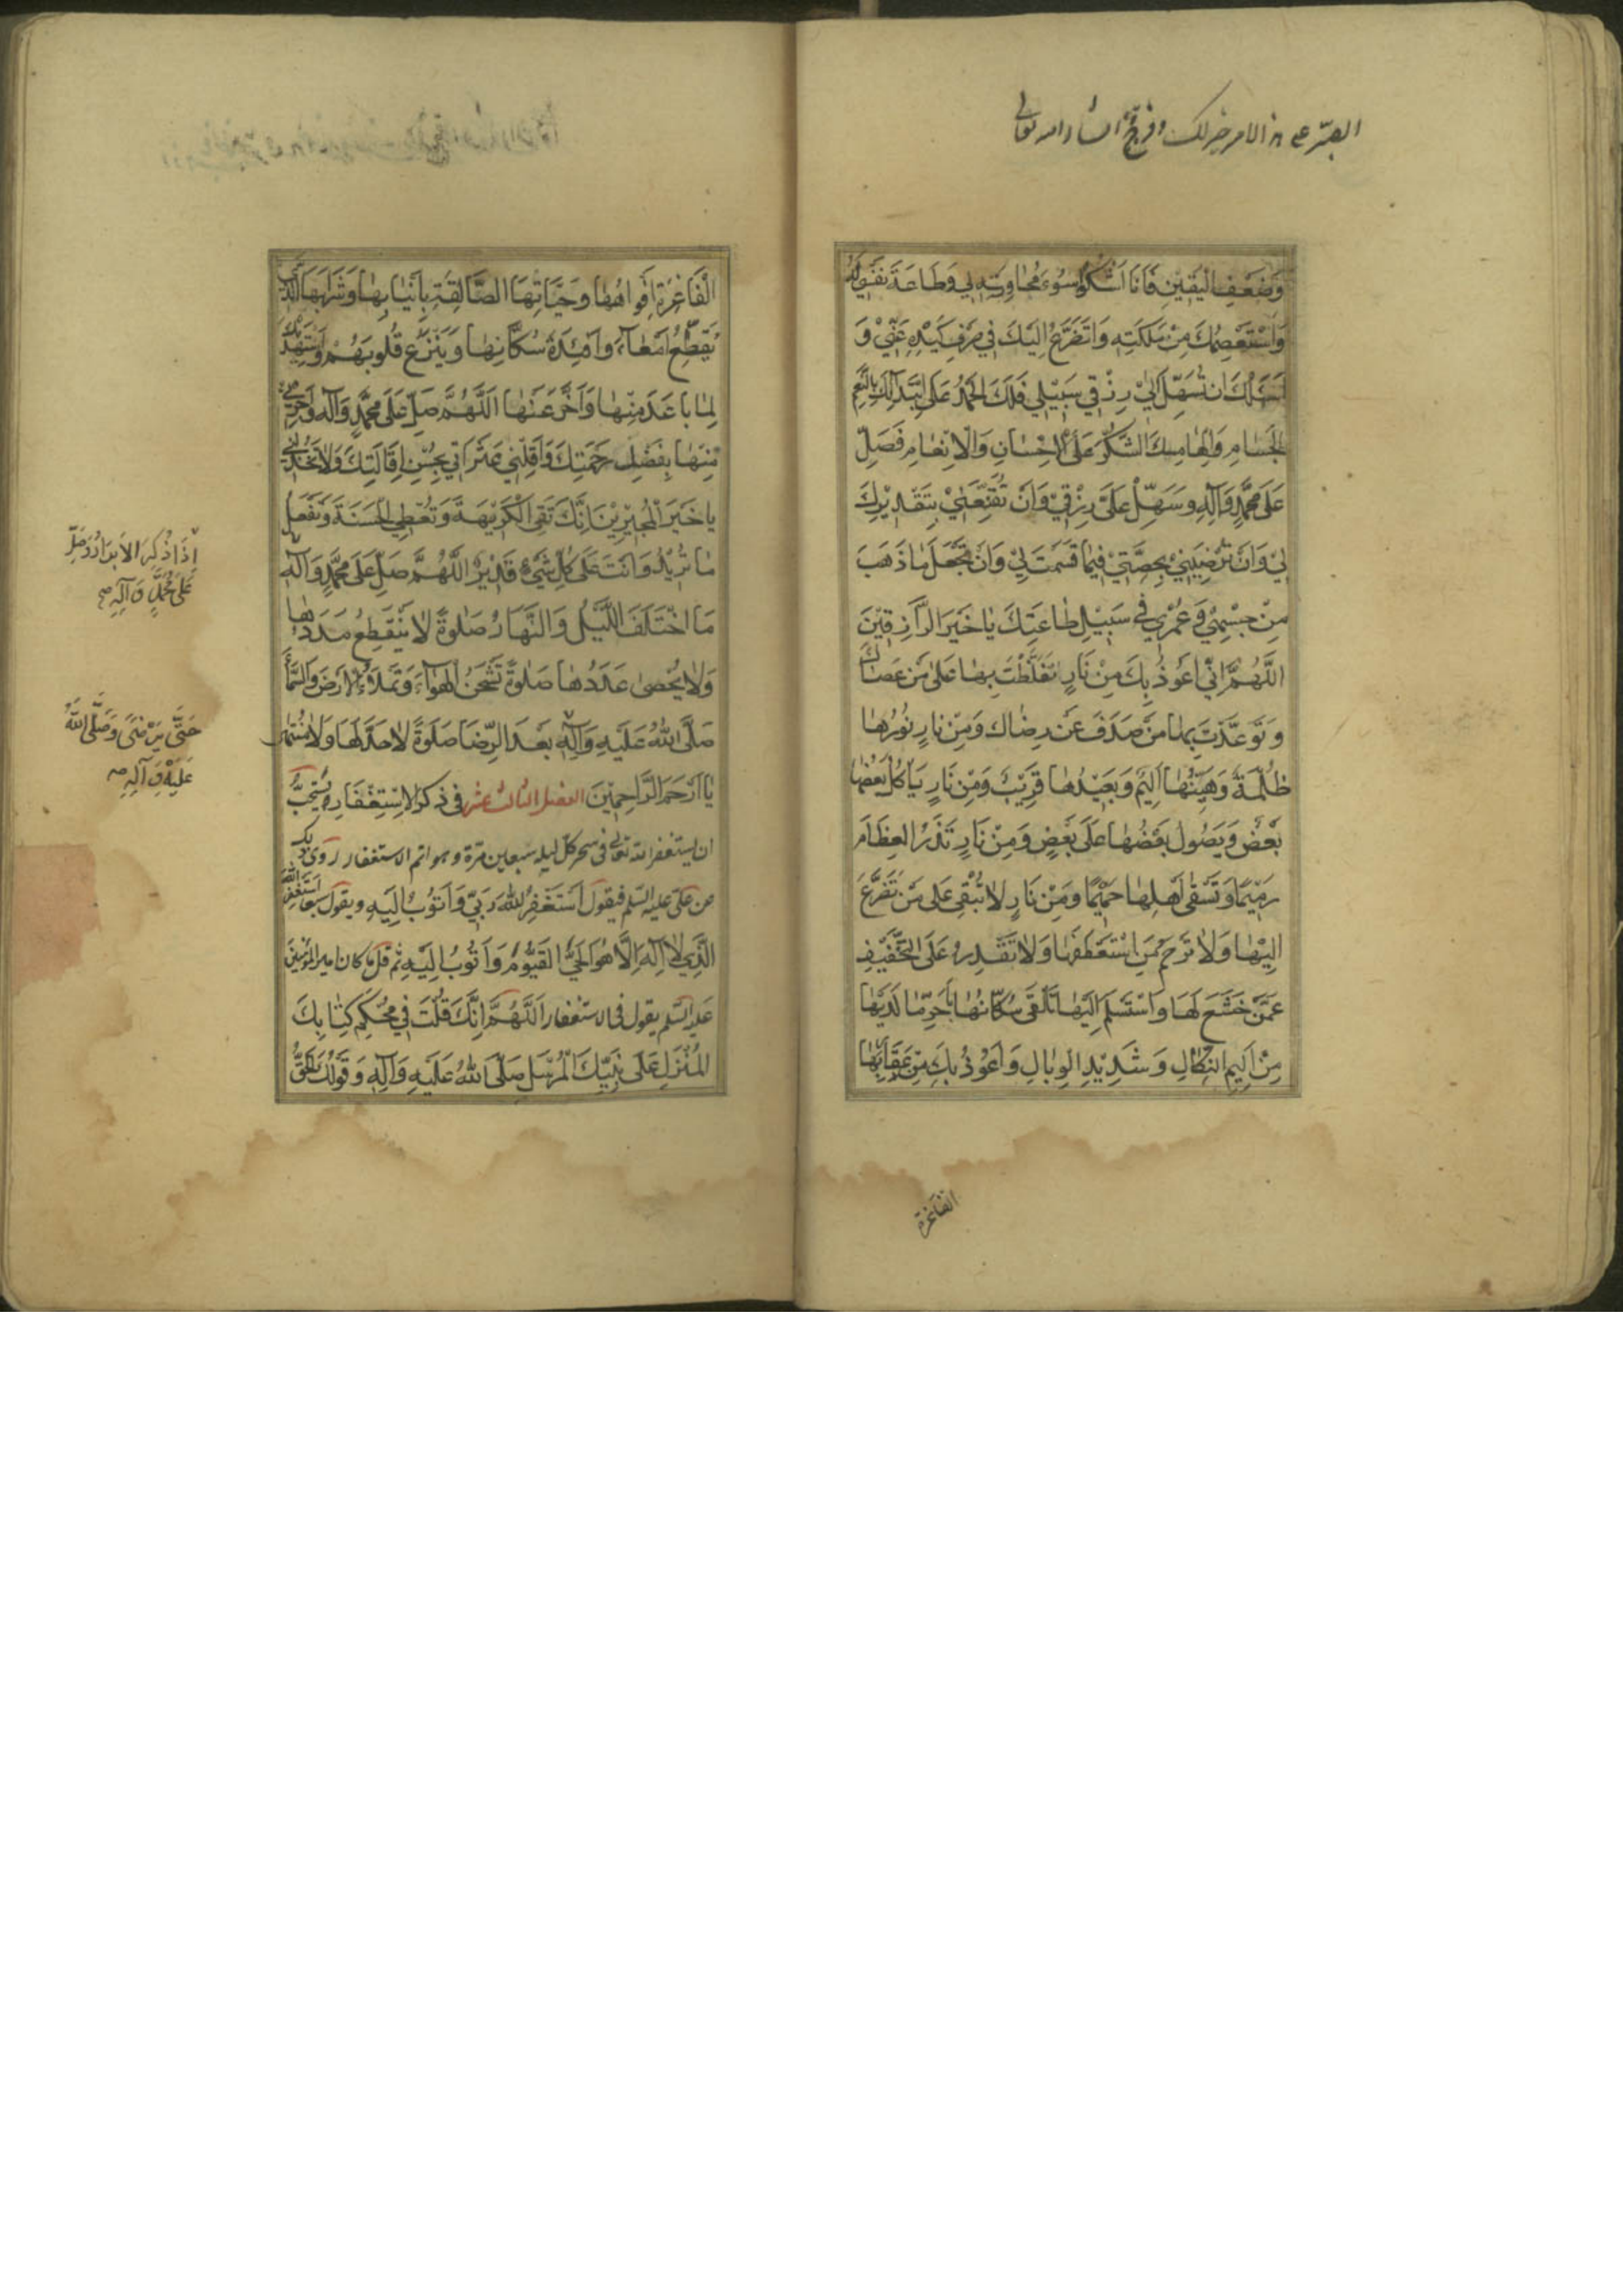 الصبر على هذا الامر خير لك وفرج انشاء الله تعالى
وَضَعْفِ الْيَقِيْنِ فَانَا اَشْكُوْ سُوْءَ مُجٰاوِرَتِهٖ لِيْ وَطَاعَةَ نَفْسِيْ لَهُ
وَاَسْتَعْصِمُكَ مِنْ مَلَكَتِهٖ وَاَتَضَرَّعُ اِلَيْكَ فِيْ صَرْفِ كَيْدِهٖ عَنِّيْ وَ
اَسْئَلُكَ اَنْ تُسَهِّلَ اِلٰى رِزْقِيْ سَبِيْلِيْ فَلَكَ الْحَمْدُ عَلَى ابْتِدَائِكَ بِالنِّعَمِ
الْجِسٰامِ وَاِلْهٰامِكَ الشُّكْرَ عَلَى الْاِحْسٰانِ وَالْاِنْعٰامِ فَصَلِّ
عَلَى مُحَمَّدٍ وَاٰلِهٖ وَسَهِّلْ عَلَيَّ رِزْقِيْ وَاَنْ تُقَنِّعَنِيْ بِتَقْدِيْرِكَ
لِيْ وَاَنْ تُرْضِيَنِيْ بِحِصَّتِيْ فِيْمٰا قَسَمْتَ لِيْ وَاَنْ تَجْعَلَ مٰا ذَهَبَ
مِنْ جِسْمِيْ وَعُمْرِيْ فِيْ سَبِيْلِ طٰاعَتِكَ يٰا خَيْرَ الرَّازِقِيْنَ
اَللّٰهُمَّ اِنِّيْ اَعُوْذُ بِكَ مِنْ نَارٍ تَغَلَّظْتَ بِهٰا عَلٰى مَنْ عَصٰاكَ
وَتَوَعَّدْتَ بِهٰا مَنْ صَدَفَ عَنْ رِضٰاكَ وَمِنْ نٰارٍ نُوْرُهٰا
ظُلْمَةٌ وَهَيِّنُهٰا اَلِيْمٌ وَبَعِيْدُهٰا قَرِيْبٌ وَمِنْ نَارٍ يَأْكُلُ بَعْضَهٰا
بَعْضٌ وَيَصُوْلُ بَعْضُهٰا عَلَى بَعْضٍ وَمِنْ نَارٍ تَذَرُ الْعِظَامَ
رَمِيْمًا وَتَسْقِى اَهْلَهٰا حَمِيْمًا وَمِنْ نَارٍ لاٰ تُبْقِيْ عَلٰى مَنْ تَضَرَّعَ
اِلَيْهٰا وَلاٰ تَرْحَمُ مَنِ اسْتَعْطَفَهٰا وَلاٰ تَقْدِرُ عَلَى التَّخْفِيْفِ
عَمَّنْ خَشَعَ لَهَا وَاسْتَسْلَمَ اِلَيْهٰا تَلْقَى سُكّٰانَهٰا بِاَحَرِّ مٰا لَدَيْهٰا
مِنْ اَلِيْمِ النَّكٰالِ وَشَدِيْدِ الْوَبٰالِ وَاَعُوْذُ بِكَ مِنْ عَقَارِبِهٰا
الفاغرة
الْفَاغِرَةِ اَفْوَاهُهٰا وَحَيَّاتِهَا الصَّالِقَةِ بِاَنْيٰابِهٰا وَشَرَابِهَا الَّذِيْ
يُقَطِّعُ اَمْعٰاءَ وَاَفْئِدَةَ سُكَّانِهٰا وَيَنْزَعُ قُلُوْبَهُمْ وَاَسْتَهْدِيْكَ
لِمٰا بٰاعَدَ مِنْهٰا وَاَخَّرَ عَنْهٰا اَللّٰهُمَّ صَلِّ عَلَى مُحَمَّدٍ وَاٰلِهٖ وَاَجِرْنِيْ
مِنْهٰا بِفَضْلِ رَحْمَتِكَ وَاَقِلْنِيْ عَثَرَاتِيْ بِحُسْنِ اِقَالَتِكَ وَلاٰ تَخْذُلْنِيْ
يٰا خَيْرَ الْمُجِيْرِيْنَ اِنَّكَ تَقِى الْكَرِيْهَةَ وَتُعْطِى الْحَسَنَةَ وَتَفْعَلُ
مٰا تُرِيْدُ وَاَنْتَ عَلَى كُلِّ شَيْءٍ قَدِيْرٌ اَللّٰهُمَّ صَلِّ عَلَى مُحَمَّدٍ وَاٰلِهٖ
اِذَا ذُكِرَ الْاَبْرَارُ وَصَلِّ
عَلَى مُحَمَّدٍ وَاٰلِهٖ صح
مَا اخْتَلَفَ اللَّيْلُ وَالنَّهَارُ صَلٰوةً لاٰ يَنْقَطِعُ مَدَدُهٰا
وَلاٰ يُحْصٰى عَدَدُهٰا صَلٰوةً تَشْحَنُ الْهَوٰاءَ وَتَمْلَاءُ الْاَرْضَ وَالسَّمٰاءَ
صَلَّى اللهُ عَلَيْهِ وَاٰلِهٖ بَعْدَ الرِّضَا صَلٰوةً لاٰ حَدَّ لَهَا وَلاٰ مُنْتَهٰى
حَتَّى يَرْضَى وَصَلَّى اللهُ
عَلَيْهِ وَاٰلِهٖ صح
يٰا اَرْحَمَ الرَّاحِمِيْنَ الفصل الثالث عشر في ذكر الاِسْتِغْفَارِ ويُسْتَحَبُّ
ان يستغفر الله تعالى في سحر كل ليلة سبعين مرة وهو اتم الاستغفار روى
عن علي عليه السلم فيقول اَسْتَغْفِرُ اللهَ رَبِّيْ وَاَتُوْبُ اِلَيْهِ ويقول سبعا اَسْتَغْفِرُ اللهَ
الَّذِيْ لاٰ اِلٰهَ اِلَّا هُوَ الْحَيُّ الْقَيُّوْمُ وَاَتُوْبُ اِلَيْهِ ثم قل ما كان امير المؤمنين
عليه السلم يقول في الاستغفار اَللّٰهُمَّ اِنَّكَ قُلْتَ فِيْ مُحْكَمِ كِتٰابِكَ
الْمُنْزَلِ عَلَى نَبِيِّكَ الْمُرْسَلِ صَلَّى اللهُ عَلَيْهِ وَاٰلِهٖ وَقَوْلُكَ الْحَقُّ